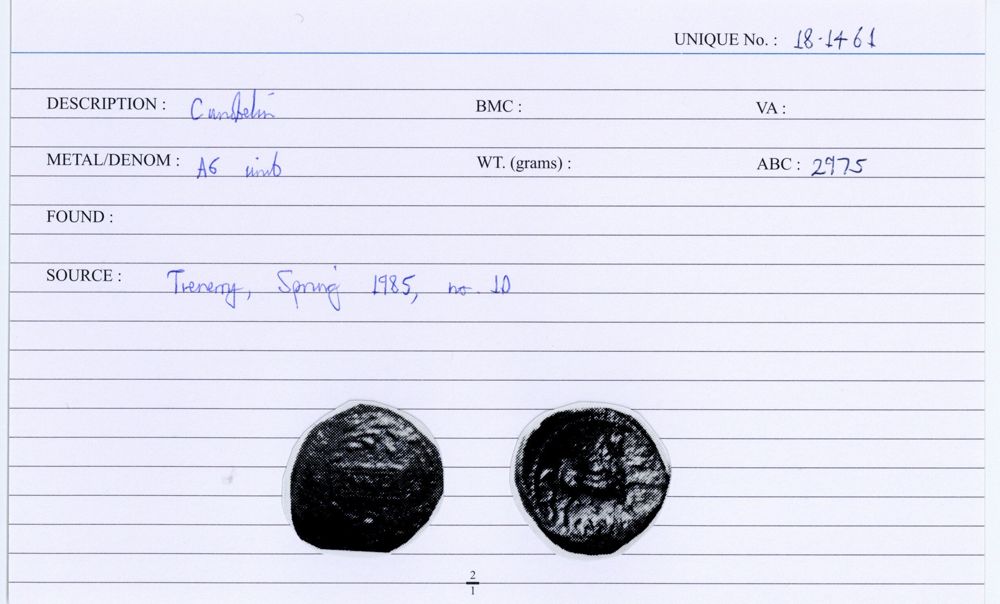 UNIQUE No. : 18-1461
DESCRIPTION : Cunobelin BMC : VA :
METAL/DENOM : AE unit WT. (grams) : ABC : 2975
FOUND :
SOURCE : Trenerry, Spring 1985, no. 10
2
1